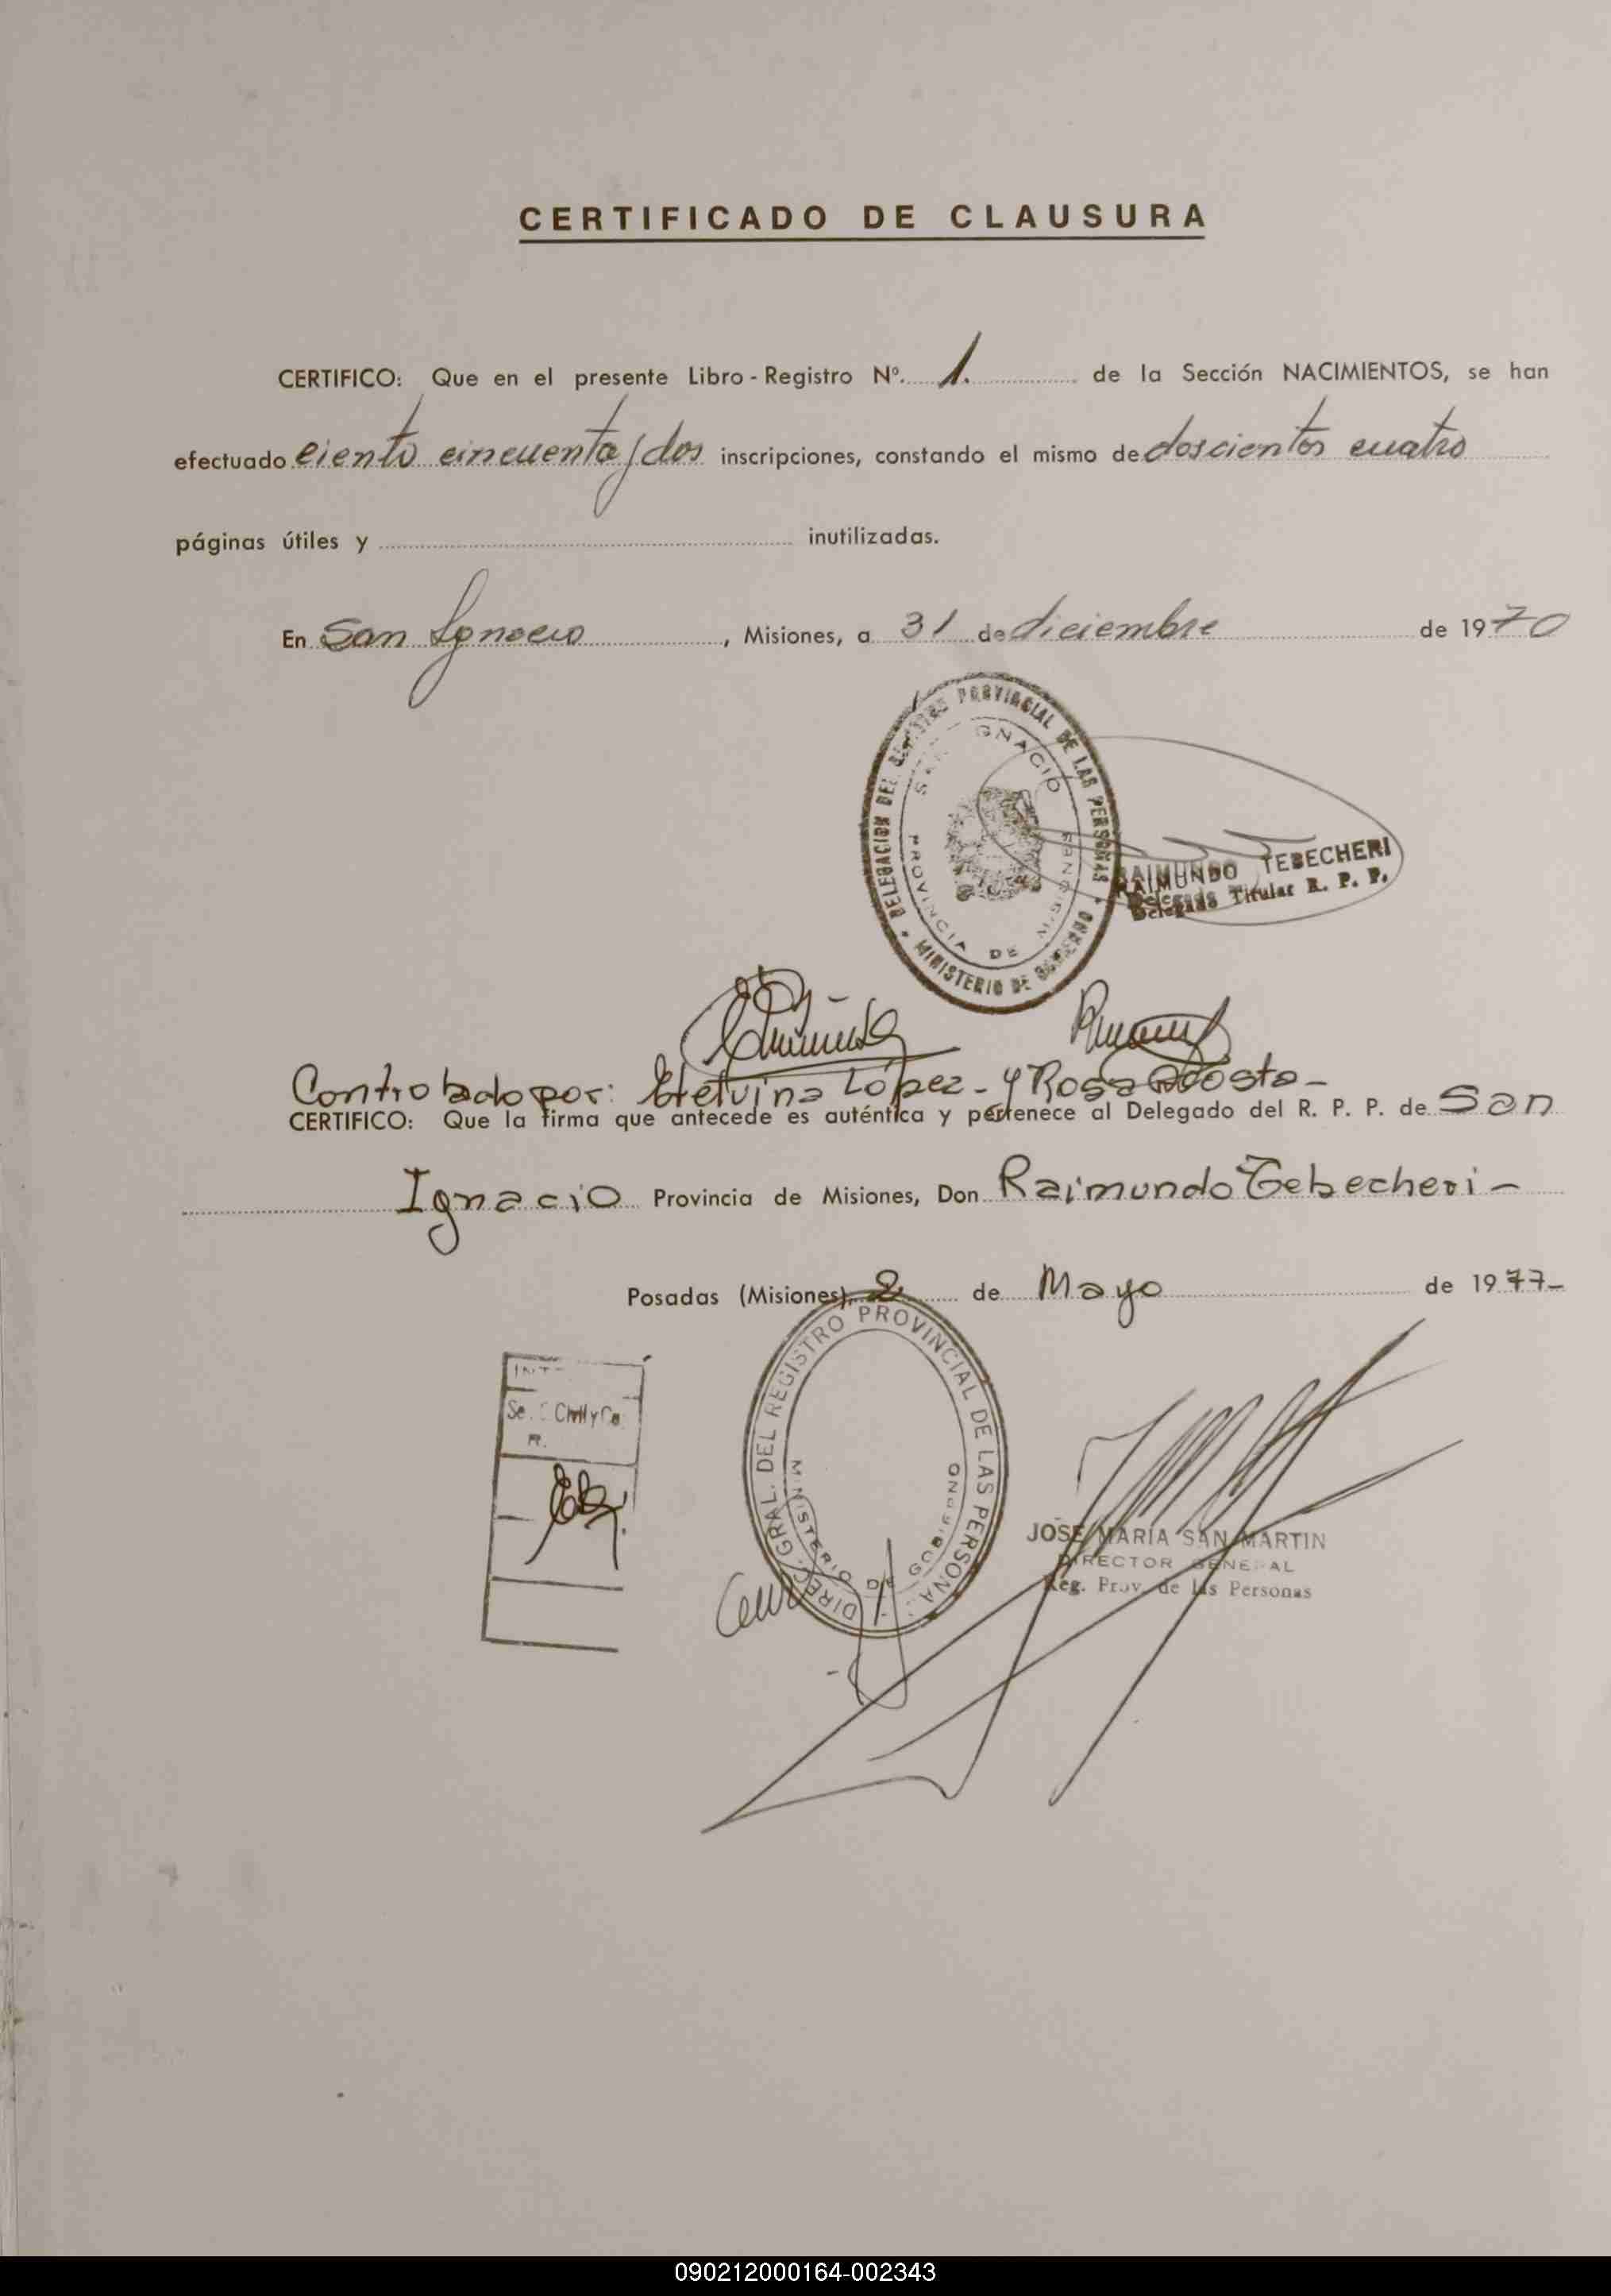 CERTIFICADO DE CLAUSURA
CERTIFICO: Que en el presente Libro - Registro Nº. 1. de la Sección NACIMIENTOS, se han
efectuado ciento cincuenta y dos inscripciones, constando el mismo de doscientos cuatro
páginas útiles y inutilizadas.
En San Ignacio, Misiones, a 31 de diciembre de 1970
DELEGACION DEL REGISTRO PROVINCIAL DE LAS PERSONAS * MINISTERIO DE GOBIERNO *
SAN IGNACIO
PROVINCIA DE MISIONES
RAIMUNDO TEBECHERI
Delegado Titular R. P. P.
Controlado por: Etelvina López - y Rosa Acosta -
CERTIFICO: Que la firma que antecede es auténtica y pertenece al Delegado del R. P. P. de San
Ignacio Provincia de Misiones, Don Raimundo Tebecheri -
Posadas (Misiones), 2 de Mayo de 1977-
DIREC. GRAL. DEL REGISTRO PROVINCIAL DE LAS PERSONAS
MINISTERIO DE GOBIERNO
JOSE MARIA SAN MARTIN
DIRECTOR GENERAL
Reg. Prov. de las Personas
090212000164-002343